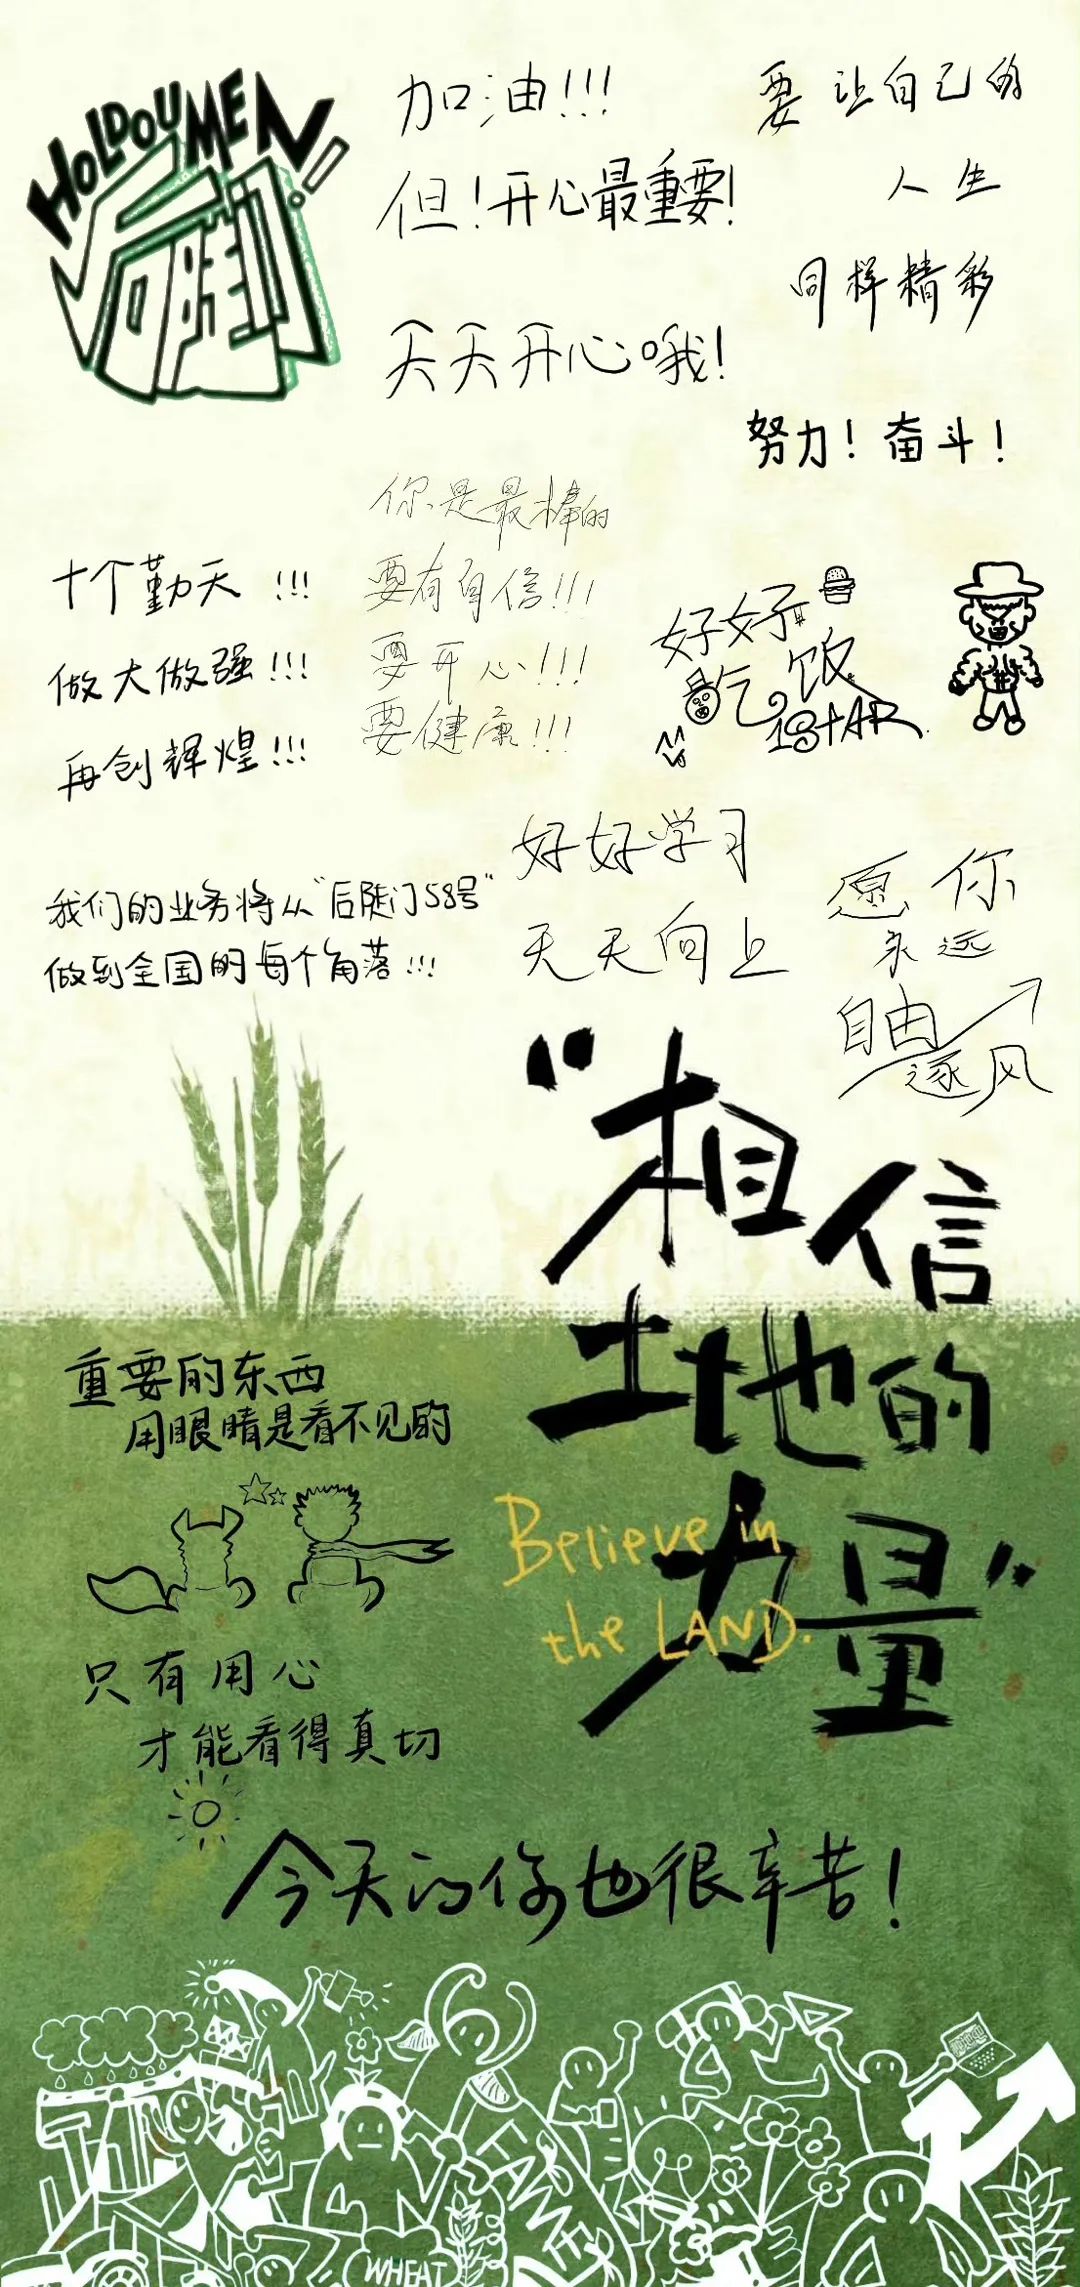 HOLDOUMEN!
后陡门
加油!!!
但!开心最重要!
天天开心哦!
要让自己的
人生
同样精彩
努力!奋斗!
你是最棒的
要有自信!!!
要开心!!!
要健康!!!
十个勤天!!!
做大做强!!!
再创辉煌!!!
好好
吃饭
1STAR
好好学习
天天向上
我们的业务将从“后陡门58号”
做到全国的每个角落!!!
愿你
永远
自由
逐风
“相信
土地的
力量”
Believe in
the LAND.
重要的东西
用眼睛是看不见的
只有用心
才能看得真切
今天的你也很辛苦!
WHEAT